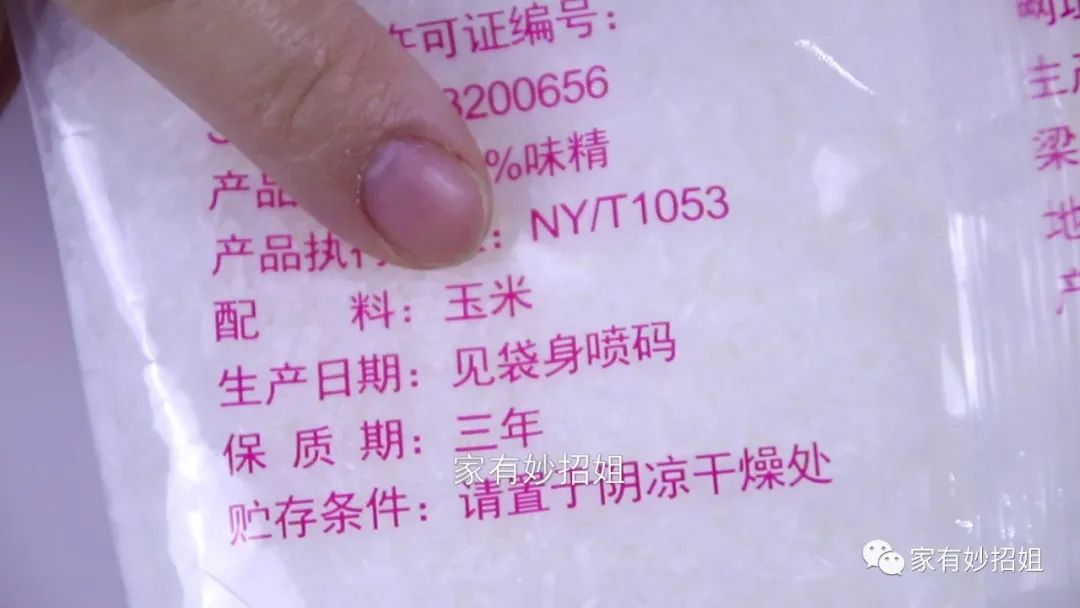 许可证编号：
3200656
产品
%味精
产品执行
：NY/T1053
配 料：玉米
生产日期：见袋身喷码
保 质 期：三年
贮存条件：请置于阴凉干燥处
家有妙招姐
梁
地
家有妙招姐